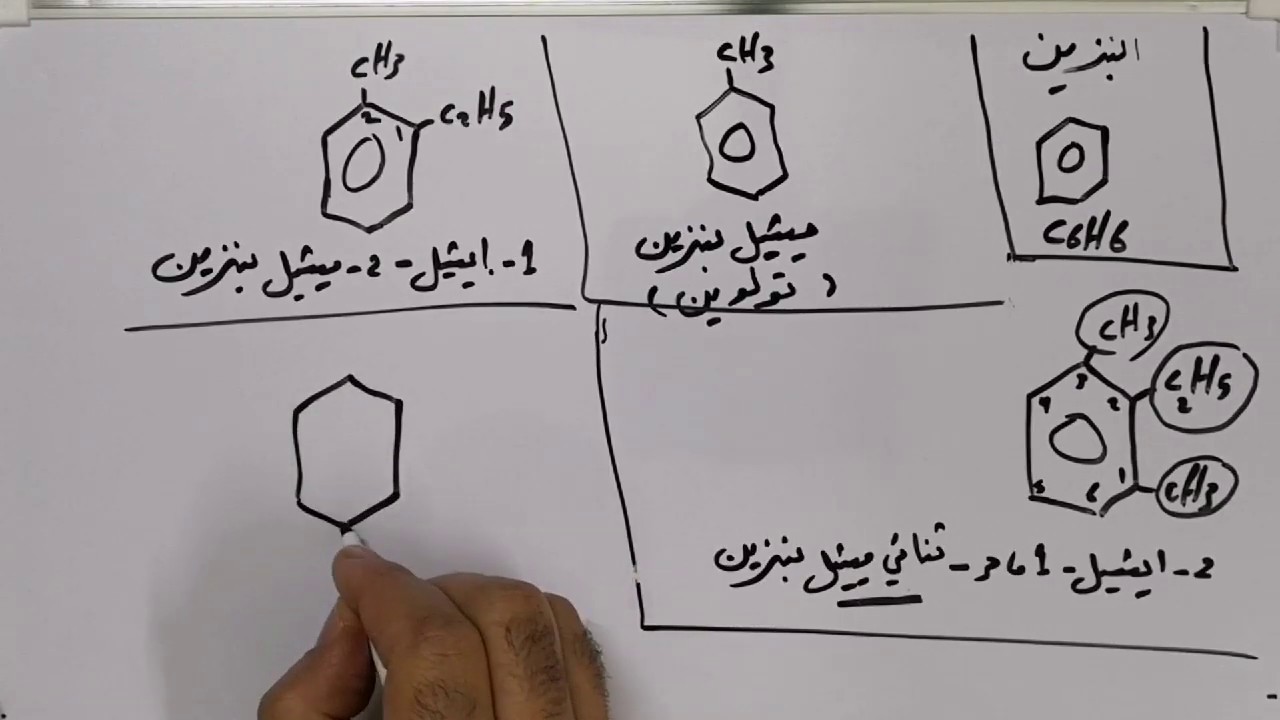 البنزين
C6H6
CH3
ميثيل بنزين
(تولوين)
CH3
C2H5
2
1
1- ايثيل - 2- ميثيل بنزين
CH3
C2H5
CH3
3
2
4
1
5
6
2- ايثيل - 1 ، 3 - ثنائي ميثيل بنزين